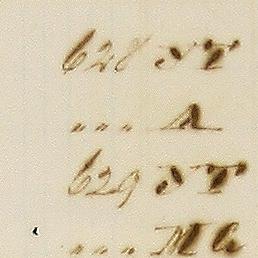 628 S T
" " " A
629 S T
" " " M G